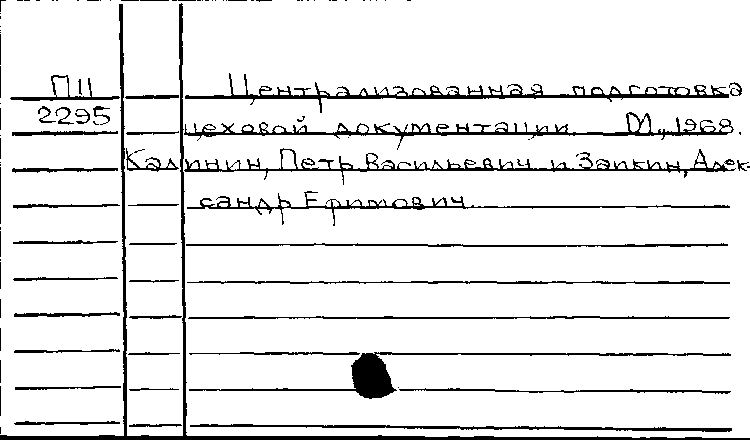 П11 Централизованная подготовка
2295 цеховой документации. М., 1968.
Калинин, Петр Васильевич и Запкин, Алек-
сандр Ефимович